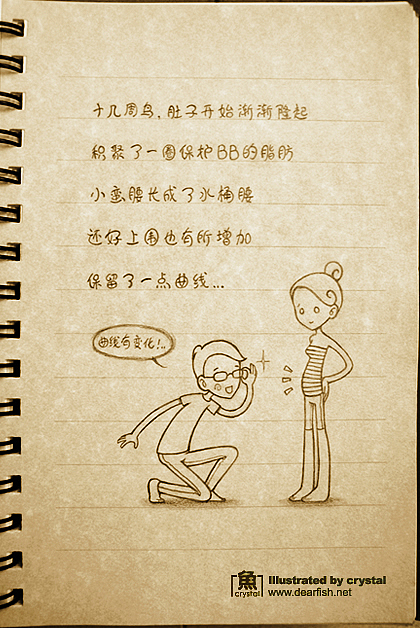 十几周鸟，肚子开始渐渐隆起
积聚了一圈保护BB的脂肪
小蛮腰长成了水桶腰
还好上围也有所增加
保留了一点曲线...
曲线有变化!..
魚
crystal
Illustrated by crystal
www.dearfish.net